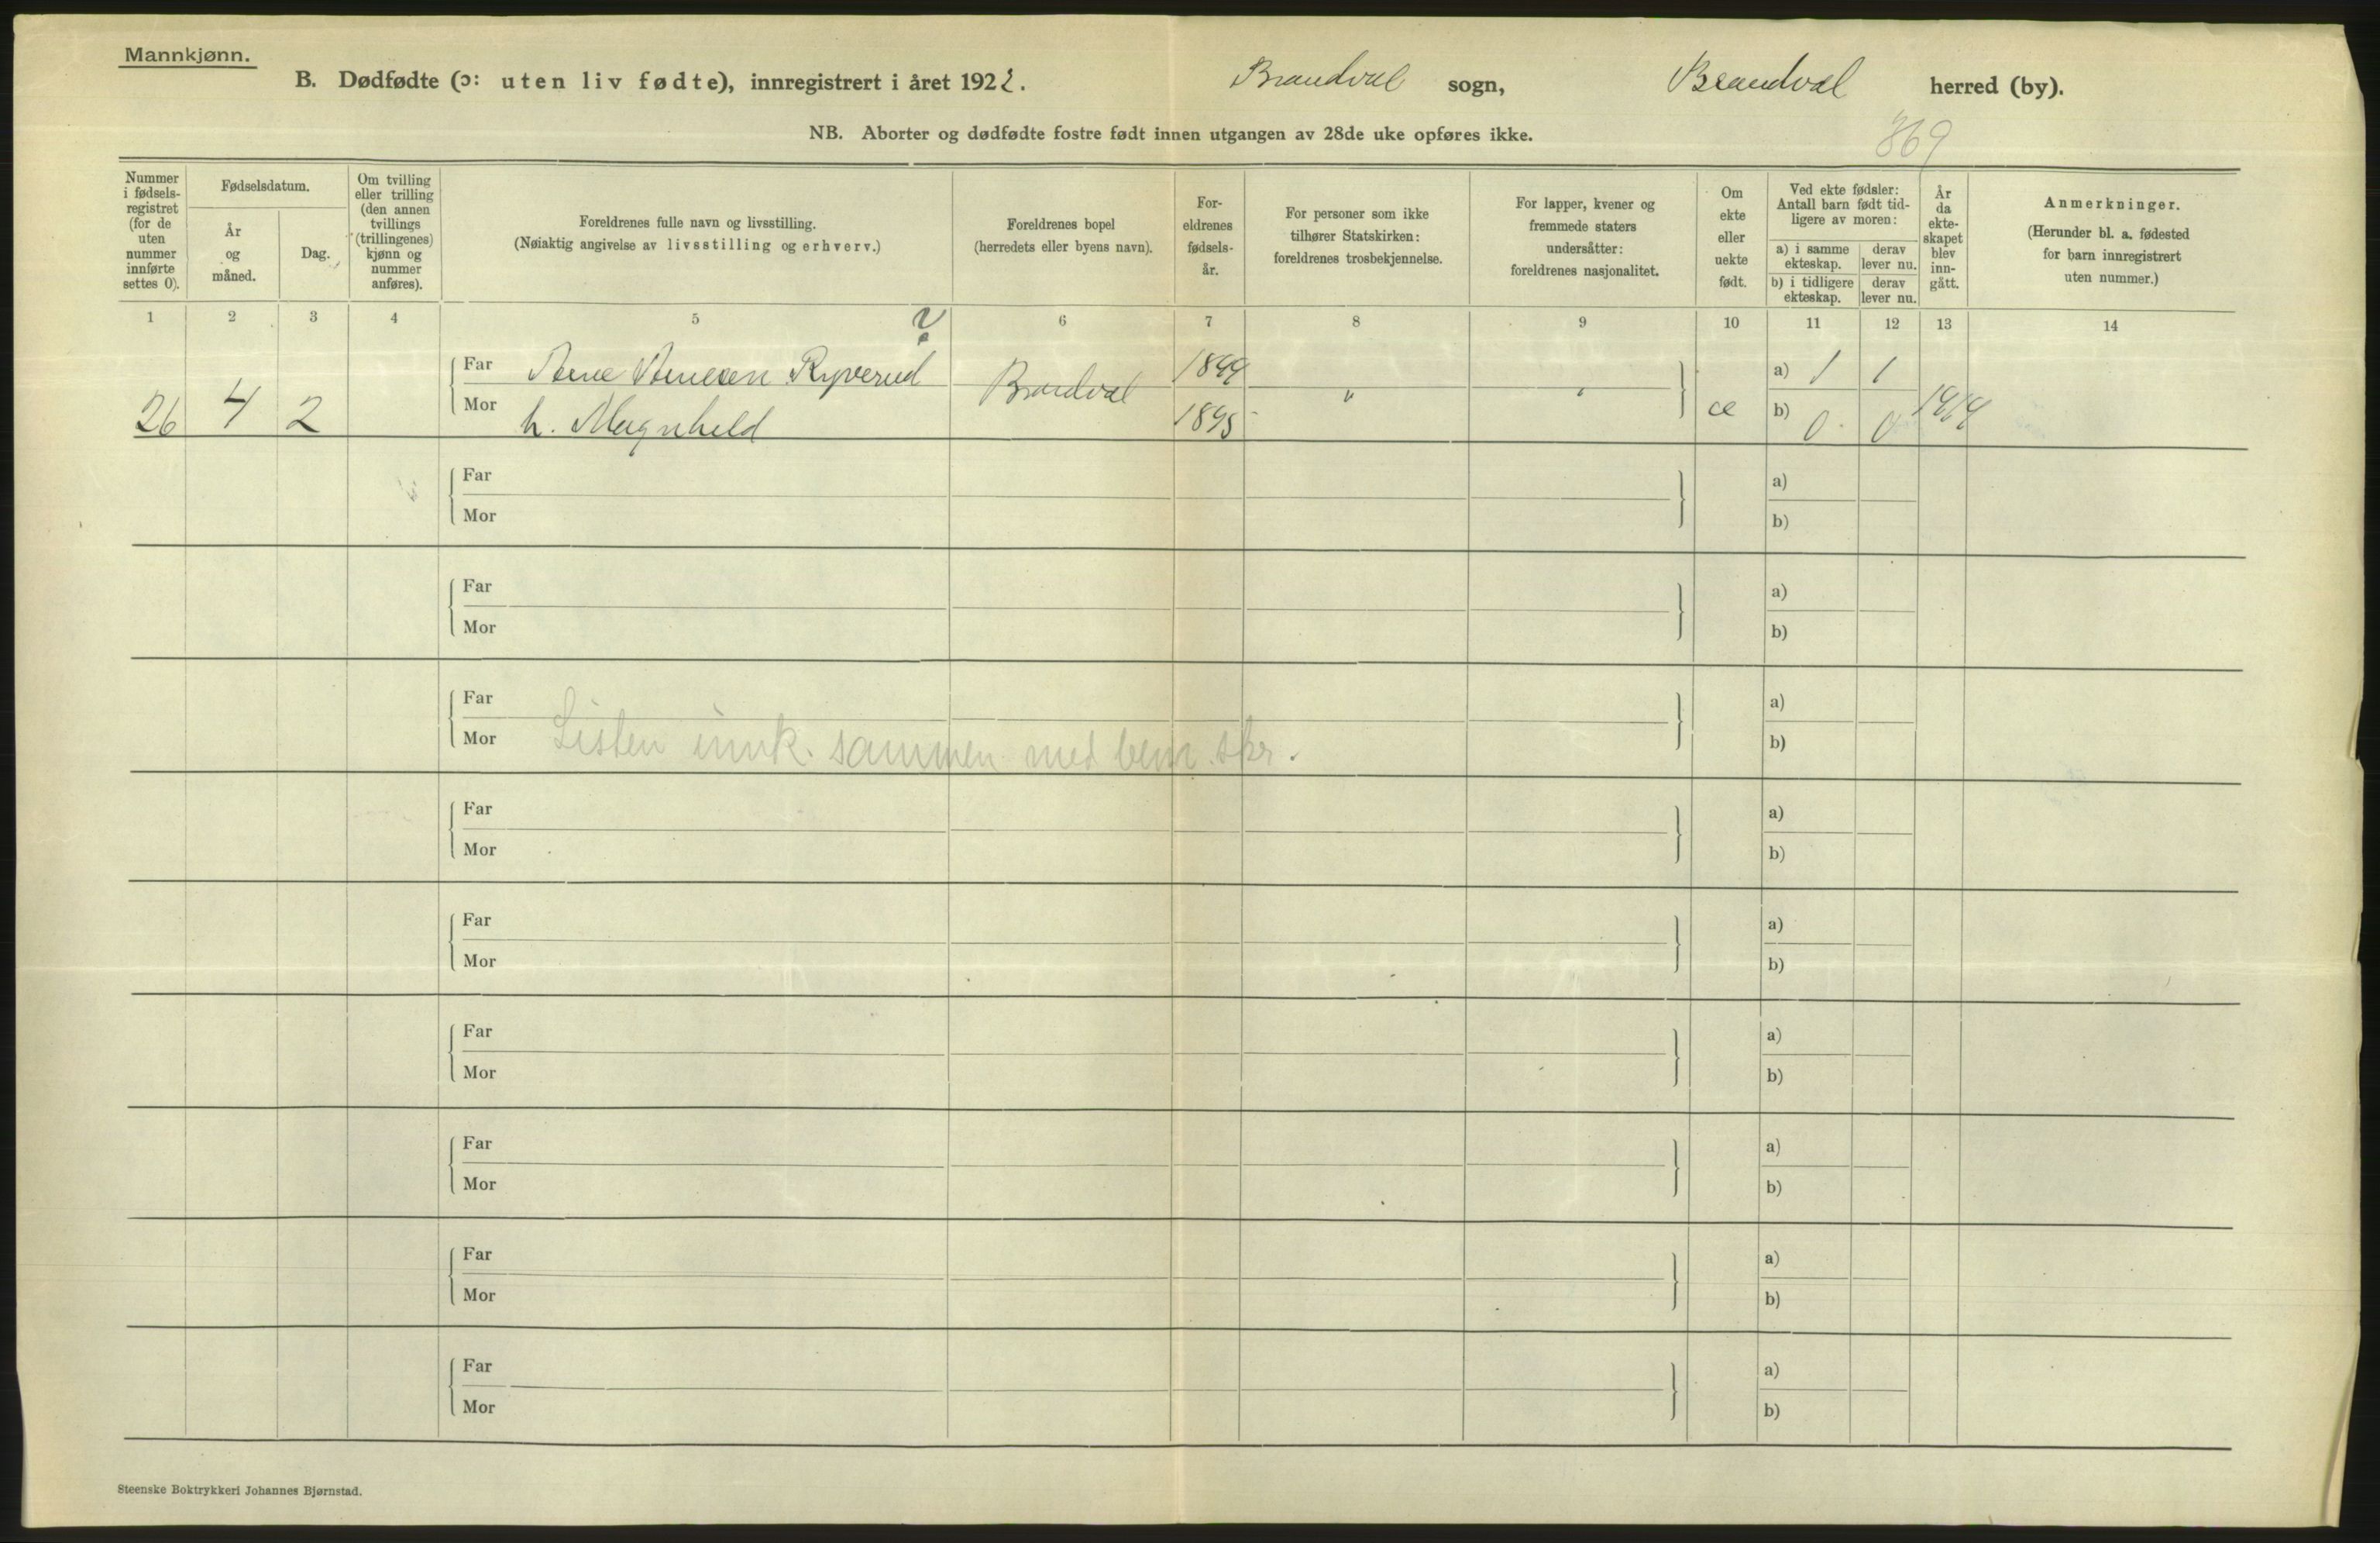 Mannkjønn.
B. Dødfødte (ɔ: uten liv fødte), innregistrert i året 1922. Brandval sogn, Brandval herred (by).
NB. Aborter og dødfødte fostre født innen utgangen av 28de uke opføres ikke.
869
Nummer i fødsels-registret (for de uten nummer innførte settes 0).
Fødselsdatum.
År og måned.
Dag.
Om tvilling eller trilling (den annen tvillings (trillingenes) kjønn og nummer anføres).
Foreldrenes fulle navn og livsstilling.
(Nøiaktig angivelse av livsstilling og erhverv.)
Foreldrenes bopel
(herredets eller byens navn).
For-eldrenes fødsels-år.
For personer som ikke tilhører Statskirken: foreldrenes trosbekjennelse.
For lapper, kvener og fremmede staters undersåtter: foreldrenes nasjonalitet.
Om ekte eller uekte født.
Ved ekte fødsler: Antall barn født tid-ligere av moren:
a) i samme ekteskap.
derav lever nu.
b) i tidligere ekteskap.
derav lever nu.
År da ekte-skapet blev inn-gått.
Anmerkninger.
(Herunder bl. a. fødested for barn innregistrert uten nummer.)
1 2 3 4 5 6 7 8 9 10 11 12 13 14
?
Far Arne Arnesen Ryverud Brandval 1899 a) 1 1
26 4 2 Mor h. Magnhild 1895 " " æ b) 0 0 1919
Far a)
Mor b)
Far a)
Mor b)
Far a)
Mor Listen innk. sammen med bem. skr. b)
Far a)
Mor b)
Far a)
Mor b)
Far a)
Mor b)
Far a)
Mor b)
Far a)
Mor b)
Far a)
Mor b)
Steenske Boktrykkeri Johannes Bjørnstad.